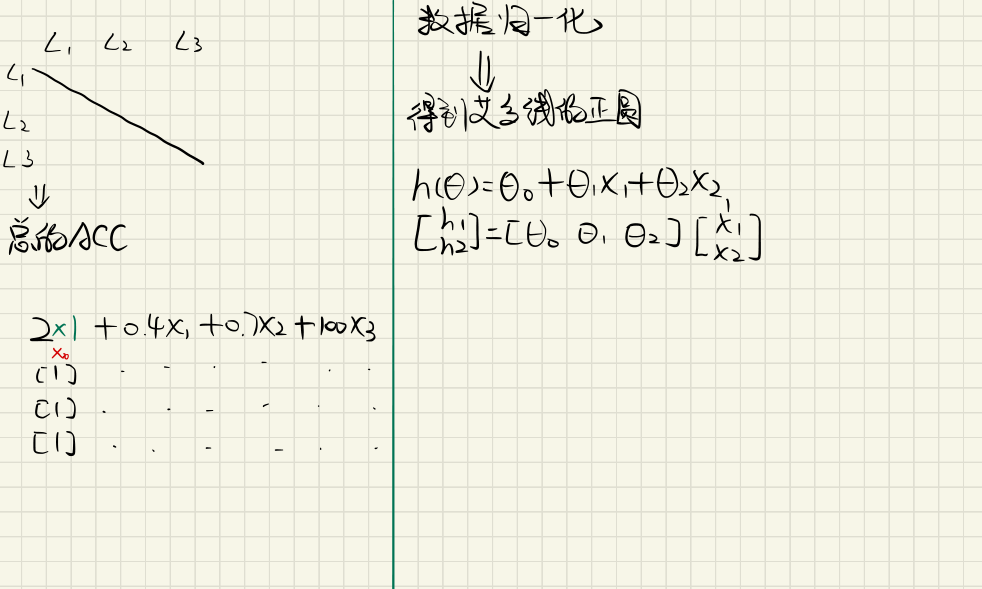 L₁ L₂ L3
L₁
L₂
L3
⇓
总的ACC
2×1 +0.4x₁+0.7x₂+100x₃
x₀
[1] · - · - · ·
[1] · · - - · ·
[1] · · - - · ·
数据归一化
⇓
得到艾多线的正圆
h(θ)=θ₀+θ₁x₁+θ₂x₂
[h₁ h₂]=[θ₀ θ₁ θ₂][1 x₁ x₂]